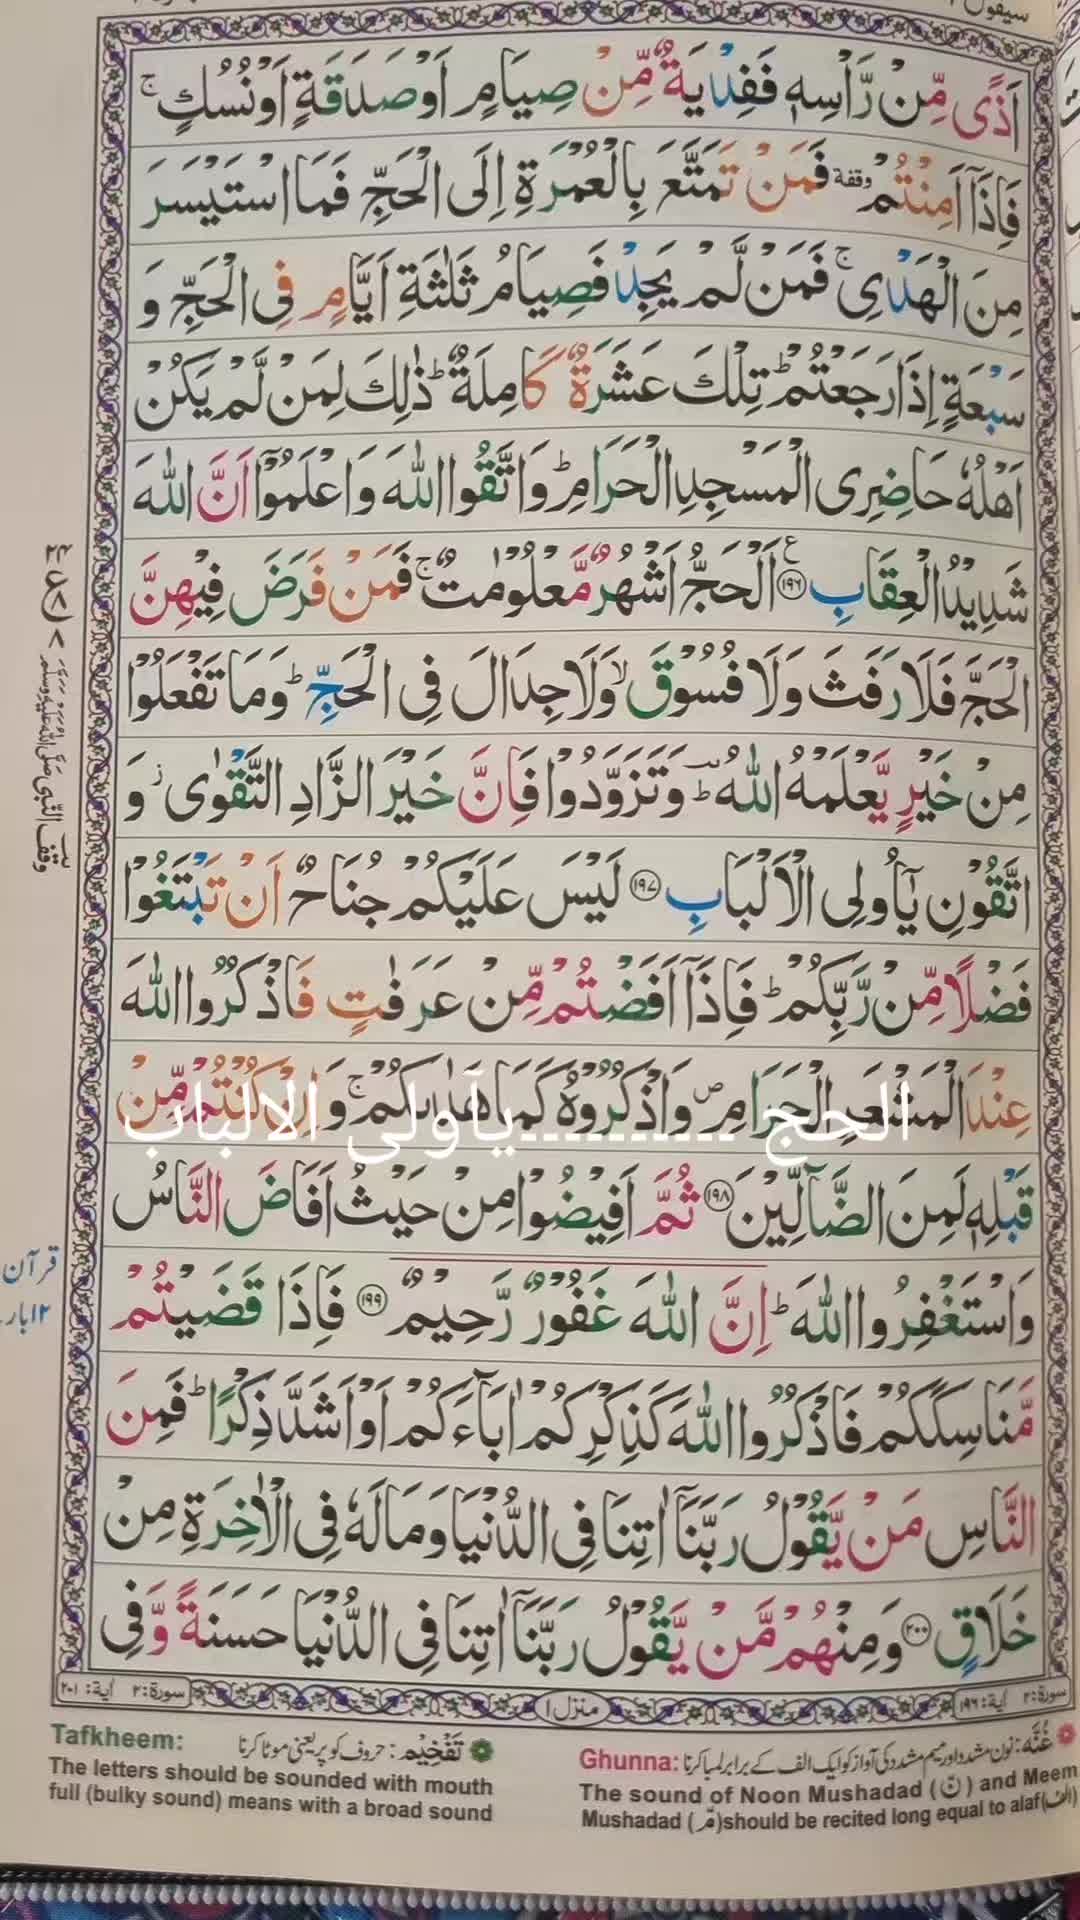 سيقول
اَذًى مِّنْ رَّاْسِهٖ فَفِدْيَةٌ مِّنْ صِيَامٍ اَوْ صَدَقَةٍ اَوْ نُسُكٍ ۚ
فَاِذَاۤ اَمِنْتُمْ وقفة فَمَنْ تَمَتَّعَ بِالْعُمْرَةِ اِلَى الْحَجِّ فَمَا اسْتَيْسَرَ
مِنَ الْهَدْيِ ۚ فَمَنْ لَّمْ يَجِدْ فَصِيَامُ ثَلٰثَةِ اَيَّامٍ فِى الْحَجِّ وَ
سَبْعَةٍ اِذَا رَجَعْتُمْ ؕ تِلْكَ عَشَرَةٌ كَامِلَةٌ ؕ ذٰلِكَ لِمَنْ لَّمْ يَكُنْ
اَهْلُهٗ حَاضِرِى الْمَسْجِدِ الْحَرَامِ ؕ وَاتَّقُوا اللّٰهَ وَاعْلَمُوْۤا اَنَّ اللّٰهَ
شَدِيْدُ الْعِقَابِ ۧ ﴿۱۹۶﴾ اَلْحَجُّ اَشْهُرٌ مَّعْلُوْمٰتٌ ۚ فَمَنْ فَرَضَ فِيْهِنَّ
الْحَجَّ فَلَا رَفَثَ وَلَا فُسُوْقَ ۙ وَلَا جِدَالَ فِى الْحَجِّ ؕ وَمَا تَفْعَلُوْا
مِنْ خَيْرٍ يَّعْلَمْهُ اللّٰهُ ؔؕ وَتَزَوَّدُوْا فَاِنَّ خَيْرَ الزَّادِ التَّقْوٰى ؗ وَ
اتَّقُوْنِ يٰۤاُولِى الْاَلْبَابِ ﴿۱۹۷﴾ لَيْسَ عَلَيْكُمْ جُنَاحٌ اَنْ تَبْتَغُوْا
فَضْلًا مِّنْ رَّبِّكُمْ ؕ فَاِذَاۤ اَفَضْتُمْ مِّنْ عَرَفٰتٍ فَاذْكُرُوا اللّٰهَ
عِنْدَ الْمَشْعَرِ الْحَرَامِ ۪ وَاذْكُرُوْهُ كَمَا هَدٰىكُمْ ۚ وَاِنْ كُنْتُمْ مِّنْ
الحج ............يآولى الالباب
قَبْلِهٖ لَمِنَ الضَّآلِّيْنَ ﴿۱۹۸﴾ ثُمَّ اَفِيْضُوْا مِنْ حَيْثُ اَفَاضَ النَّاسُ
وَاسْتَغْفِرُوا اللّٰهَ ؕ اِنَّ اللّٰهَ غَفُوْرٌ رَّحِيْمٌ ﴿۱۹۹﴾ فَاِذَا قَضَيْتُمْ
مَّنَاسِكَكُمْ فَاذْكُرُوا اللّٰهَ كَذِكْرِكُمْ اٰبَآءَكُمْ اَوْ اَشَدَّ ذِكْرًا ؕ فَمِنَ
النَّاسِ مَنْ يَّقُوْلُ رَبَّنَاۤ اٰتِنَا فِى الدُّنْيَا وَمَا لَهٗ فِى الْاٰخِرَةِ مِنْ
خَلَاقٍ ﴿۲۰۰﴾ وَمِنْهُمْ مَّنْ يَّقُوْلُ رَبَّنَاۤ اٰتِنَا فِى الدُّنْيَا حَسَنَةً وَّفِى
وقف النبي صَلَّى اللهُ عَلَيْهِ وَسَلَّمَ
قرآن
۱۲بار
سورة:۲ اية:۱۹۶
منزل ۱
سورة:۲ اية:۲۰۱
غُنَّه: نون مشدد اور میم مشدد کی آواز کو ایک الف کے برابر لمبا کرنا
Ghunna:
The sound of Noon Mushadad (نّ) and Meem
Mushadad (مّ)should be recited long equal to alaf(الف)
تَفْخِيْم: حروف کو پر یعنی موٹا کرنا
Tafkheem:
The letters should be sounded with mouth
full (bulky sound) means with a broad sound